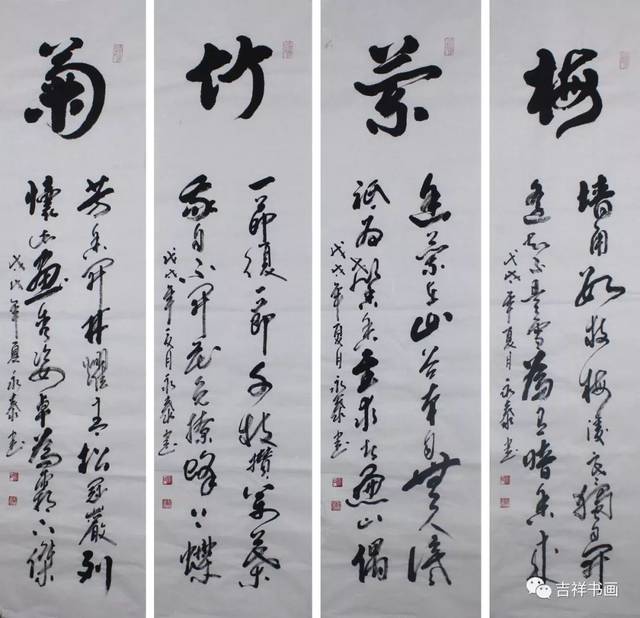 梅
墙角数枝梅凌寒獨自開
遥知不是雪為有暗香来
戊戌年夏月永泰书
蘭
幽蘭在山谷本自無人識
祇為馨香重求者遍山隅
戊戌年夏月永泰书
竹
一節復一節千枝攢萬葉
我自不開花免撩蜂与蝶
戊戌年夏月永泰书
菊
芳菊開林耀青松冠巖列
懷此貞秀姿卓為霜下傑
戊戌年夏永泰书
吉祥书画